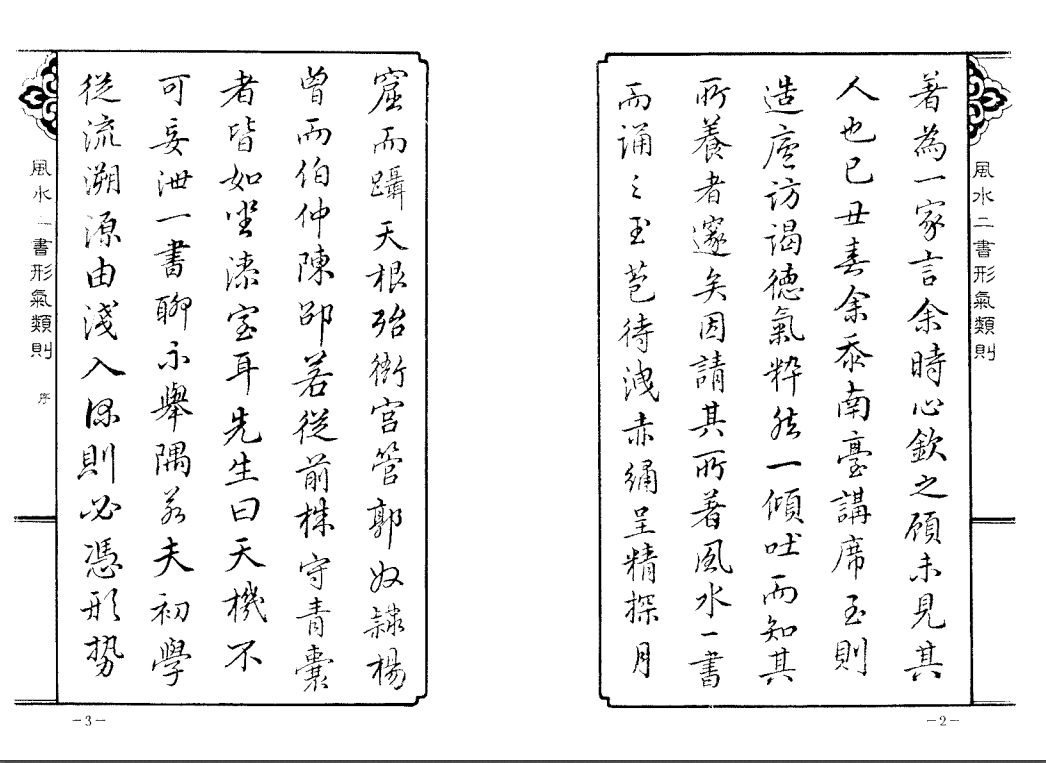 風水二書形氣類則
著為一家言余時心欽之顧未見其
人也已丑春余忝南臺講席至則
造廬訪謁德氣粹然一傾吐而知其
所養者邃矣因請其所著風水一書
而誦之至苞待洩赤繡呈精探月
-2-
窟而躡天根殆衙宮管郭奴隸楊
曾而伯仲陳邵若從前株守青囊
者皆如坐漆室耳先生曰天機不
可妄泄一書聊示舉隅若夫初學
從流溯源由淺入深則必憑形勢
風水一書形氣類則
序
-3-